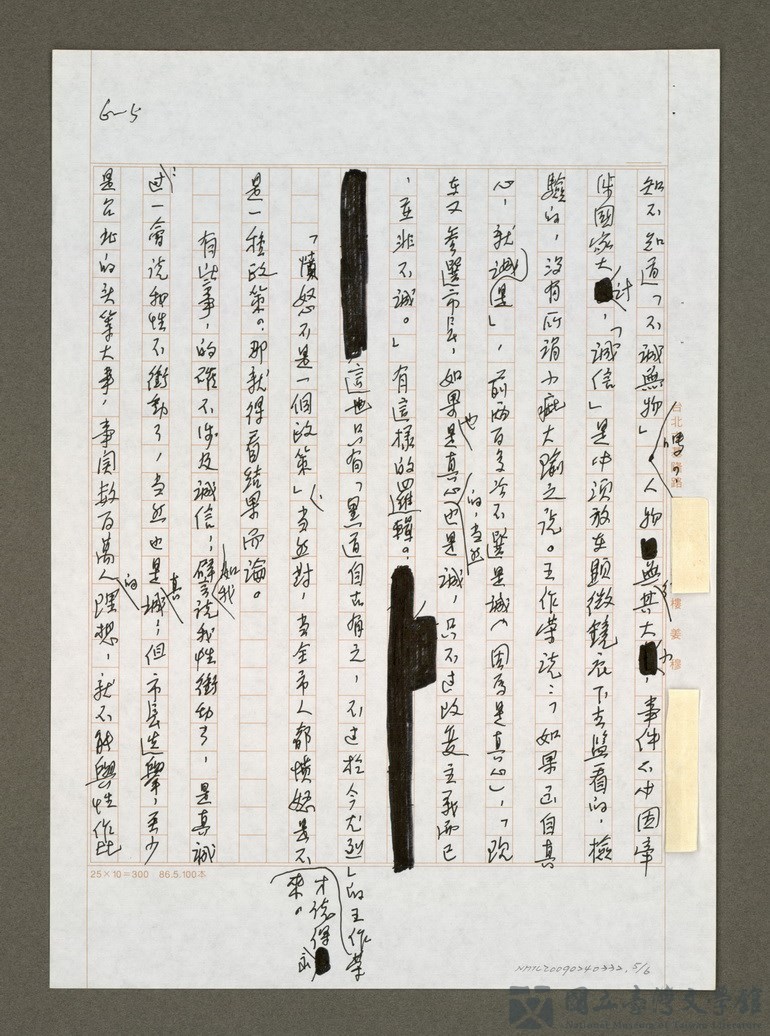 6-5
知不知道「不誠無物」。人物無其大小，事件不中國事
涉國家大計，「誠信」是必須放在顯微鏡底下去監看的，檢
驗的，沒有所謂小疵大瑜之說。王作榮說：「如果出自真
心，就是誠」，前兩百多次不選是誠（因為是真心」，「現
在又參選市長，如果也是真心的，當然也是誠，只不過改變主義而已
，並非不誠。」有這樣的邏輯。
這也只有「黑道自古有之，不過於今尤烈」的王作榮
才能說得出來。
「憤怒不是一個政策」當然對，當全市人都憤怒是不
是一種政策。那就得看結果而論。
有些事，的確不涉及誠信，譬如我說我性衝動了，是真誠
過一會說我性不衝動了，當然也是真誠；但市長選舉，至少
是台北的頭等大事，事關數百萬人的理想，就不能與性作比
台北
樓 姜 穆
25×10=300 86.5.100本
NMTL20090240332, 5/6
國立台灣文學館
National Museum of Taiwan Literature